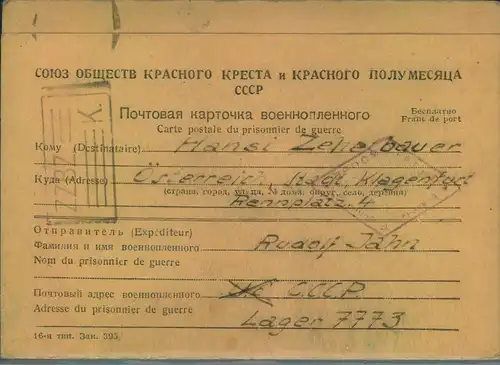 СОЮЗ ОБЩЕСТВ КРАСНОГО КРЕСТА и КРАСНОГО ПОЛУМЕСЯЦА
СССР
Почтовая карточка военнопленного
Carte postale du prisonnier de guerre
Бесплатно
Franc de port
Кому (Destinataire) Hansi Zehetbauer
Куда (Adresse) Österreich, Stadt Klagenfurt
(страна, город, улица, № дома, округ, село, деревня)
Rennplatz. 4
Отправитель (Expéditeur)
Фамилия и имя военнопленного Rudolf Jahn
Nom du prisonnier de guerre
Почтовый адрес военнопленного С.С.С.Р.
Adresse du prisonnier de guerre
Lager 7773
16-я тип. Зак. 595